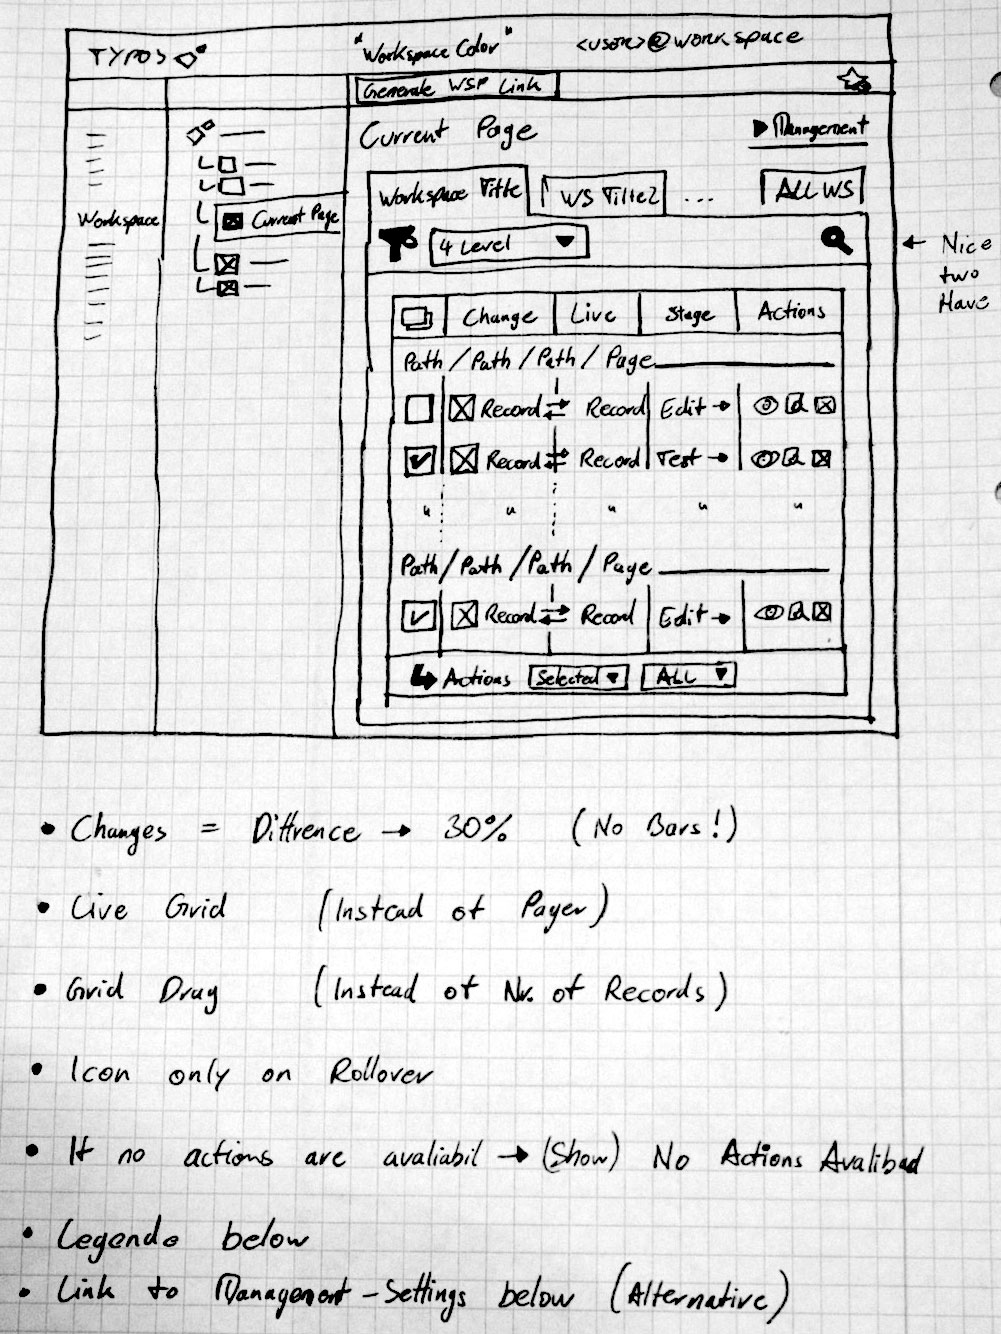 TYPO3
"Workspace Color"
<user>@workspace
Generate WSP Link
Current Page
▶ Management
Workspace Title
WS Title2
...
ALL WS
Workspace
Current Page
4 Level
← Nice
two
Have
Change
Live
Stage
Actions
Path / Path / Path / Page
Record ⇄ Record Edit →
Record ⇄ Record Test →
" " " " "
Path / Path / Path / Page
Record ⇄ Record Edit →
Actions Selected ▼ ALL ▼
• Changes = Diffrence → 30% (No Bars!)
• Live Grid (Instead of Pager)
• Grid Drag (Instead of Nr. of Records)
• Icon only on Rollover
• If no actions are avaliabil → (Show) No Actions Avalibad
• Legende below
• Link to Management-Settings below (Alternative)